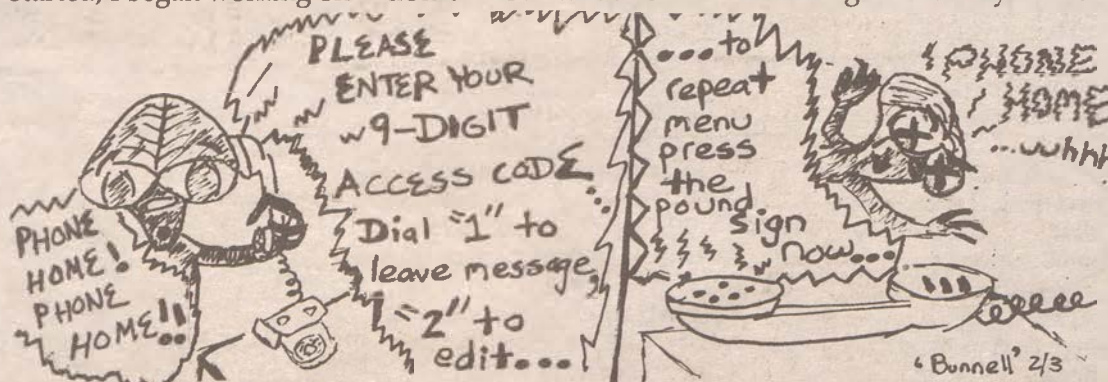 started, I began working
PHONE
HOME!
PHONE
HOME!!
PLEASE
ENTER YOUR
9-DIGIT
ACCESS CODE
Dial "1" to
leave message,
"2" to
edit...
...to
repeat
menu
press
the
pound
sign
now...
PHONE
HOME
...uuhhh
"Bunnell" 2/3